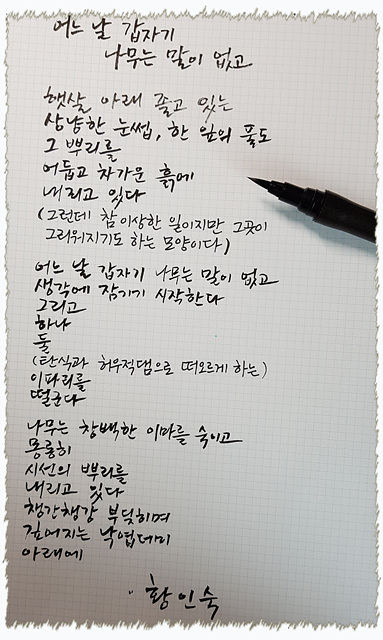 어느 날 갑자기
나무는 말이 없고
햇살 아래 졸고 있는
상냥한 눈썹, 한 잎의 풀도
그 뿌리를
어둡고 차가운 흙에
내리고 있다
(그런데 참 이상한 일이지만 그곳이
그리워지기도 하는 모양이다)
어느 날 갑자기 나무는 말이 없고
생각에 잠기기 시작한다
그리고
하나
둘
(탄식과 허우적댐으로 떠오르게 하는)
이파리를
떨군다
나무는 창백한 이마를 숙이고
몽롱히
시선의 뿌리를
내리고 있다
챙강챙강 부딪히며
깊어지는 낙엽더미
아래에
황인숙